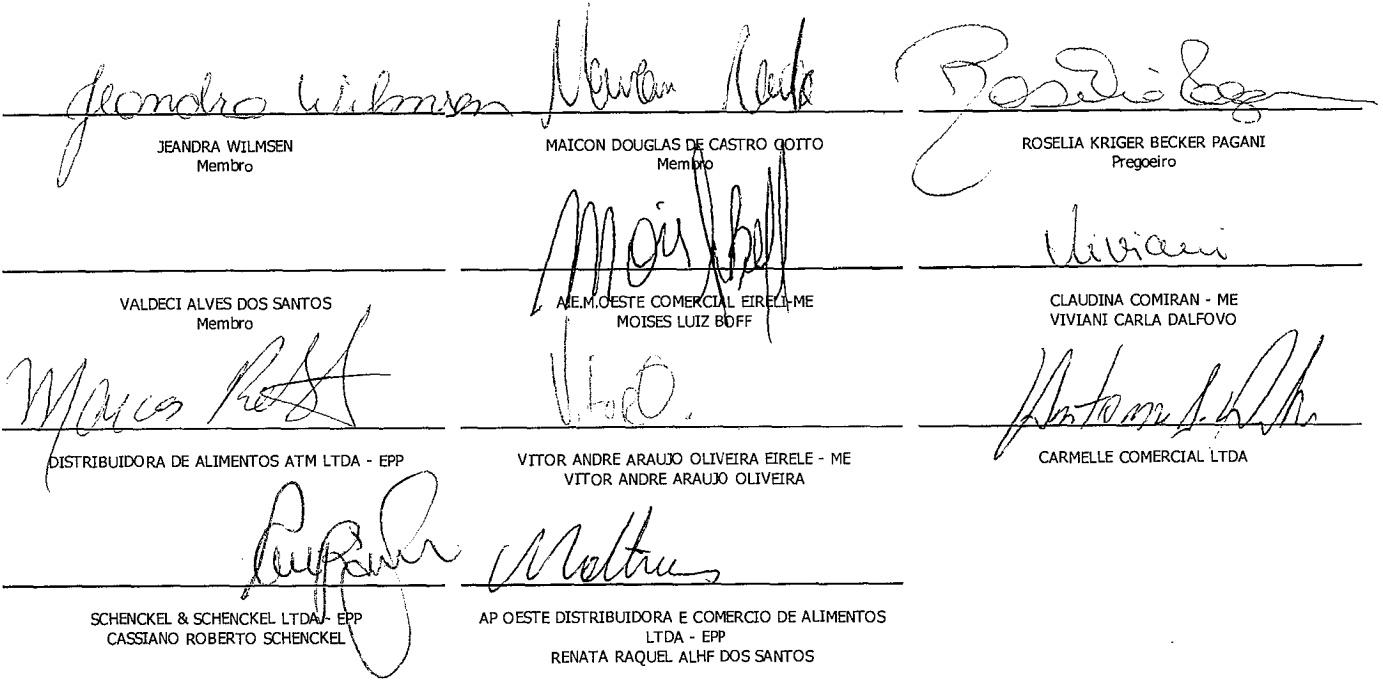 Jeandra Wilmsen
JEANDRA WILMSEN
Membro
MAICON DOUGLAS DE CASTRO GOITO
Membro
ROSELIA KRIGER BECKER PAGANI
Pregoeiro
VALDECI ALVES DOS SANTOS
Membro
A.E.M.OESTE COMERCIAL EIRELI-ME
MOISES LUIZ BOFF
Viviani
CLAUDINA COMIRAN - ME
VIVIANI CARLA DALFOVO
Marcos
DISTRIBUIDORA DE ALIMENTOS ATM LTDA - EPP
VITOR ANDRE ARAUJO OLIVEIRA EIRELE - ME
VITOR ANDRE ARAUJO OLIVEIRA
CARMELLE COMERCIAL LTDA
SCHENCKEL & SCHENCKEL LTDA - EPP
CASSIANO ROBERTO SCHENCKEL
AP OESTE DISTRIBUIDORA E COMERCIO DE ALIMENTOS
LTDA - EPP
RENATA RAQUEL ALHF DOS SANTOS